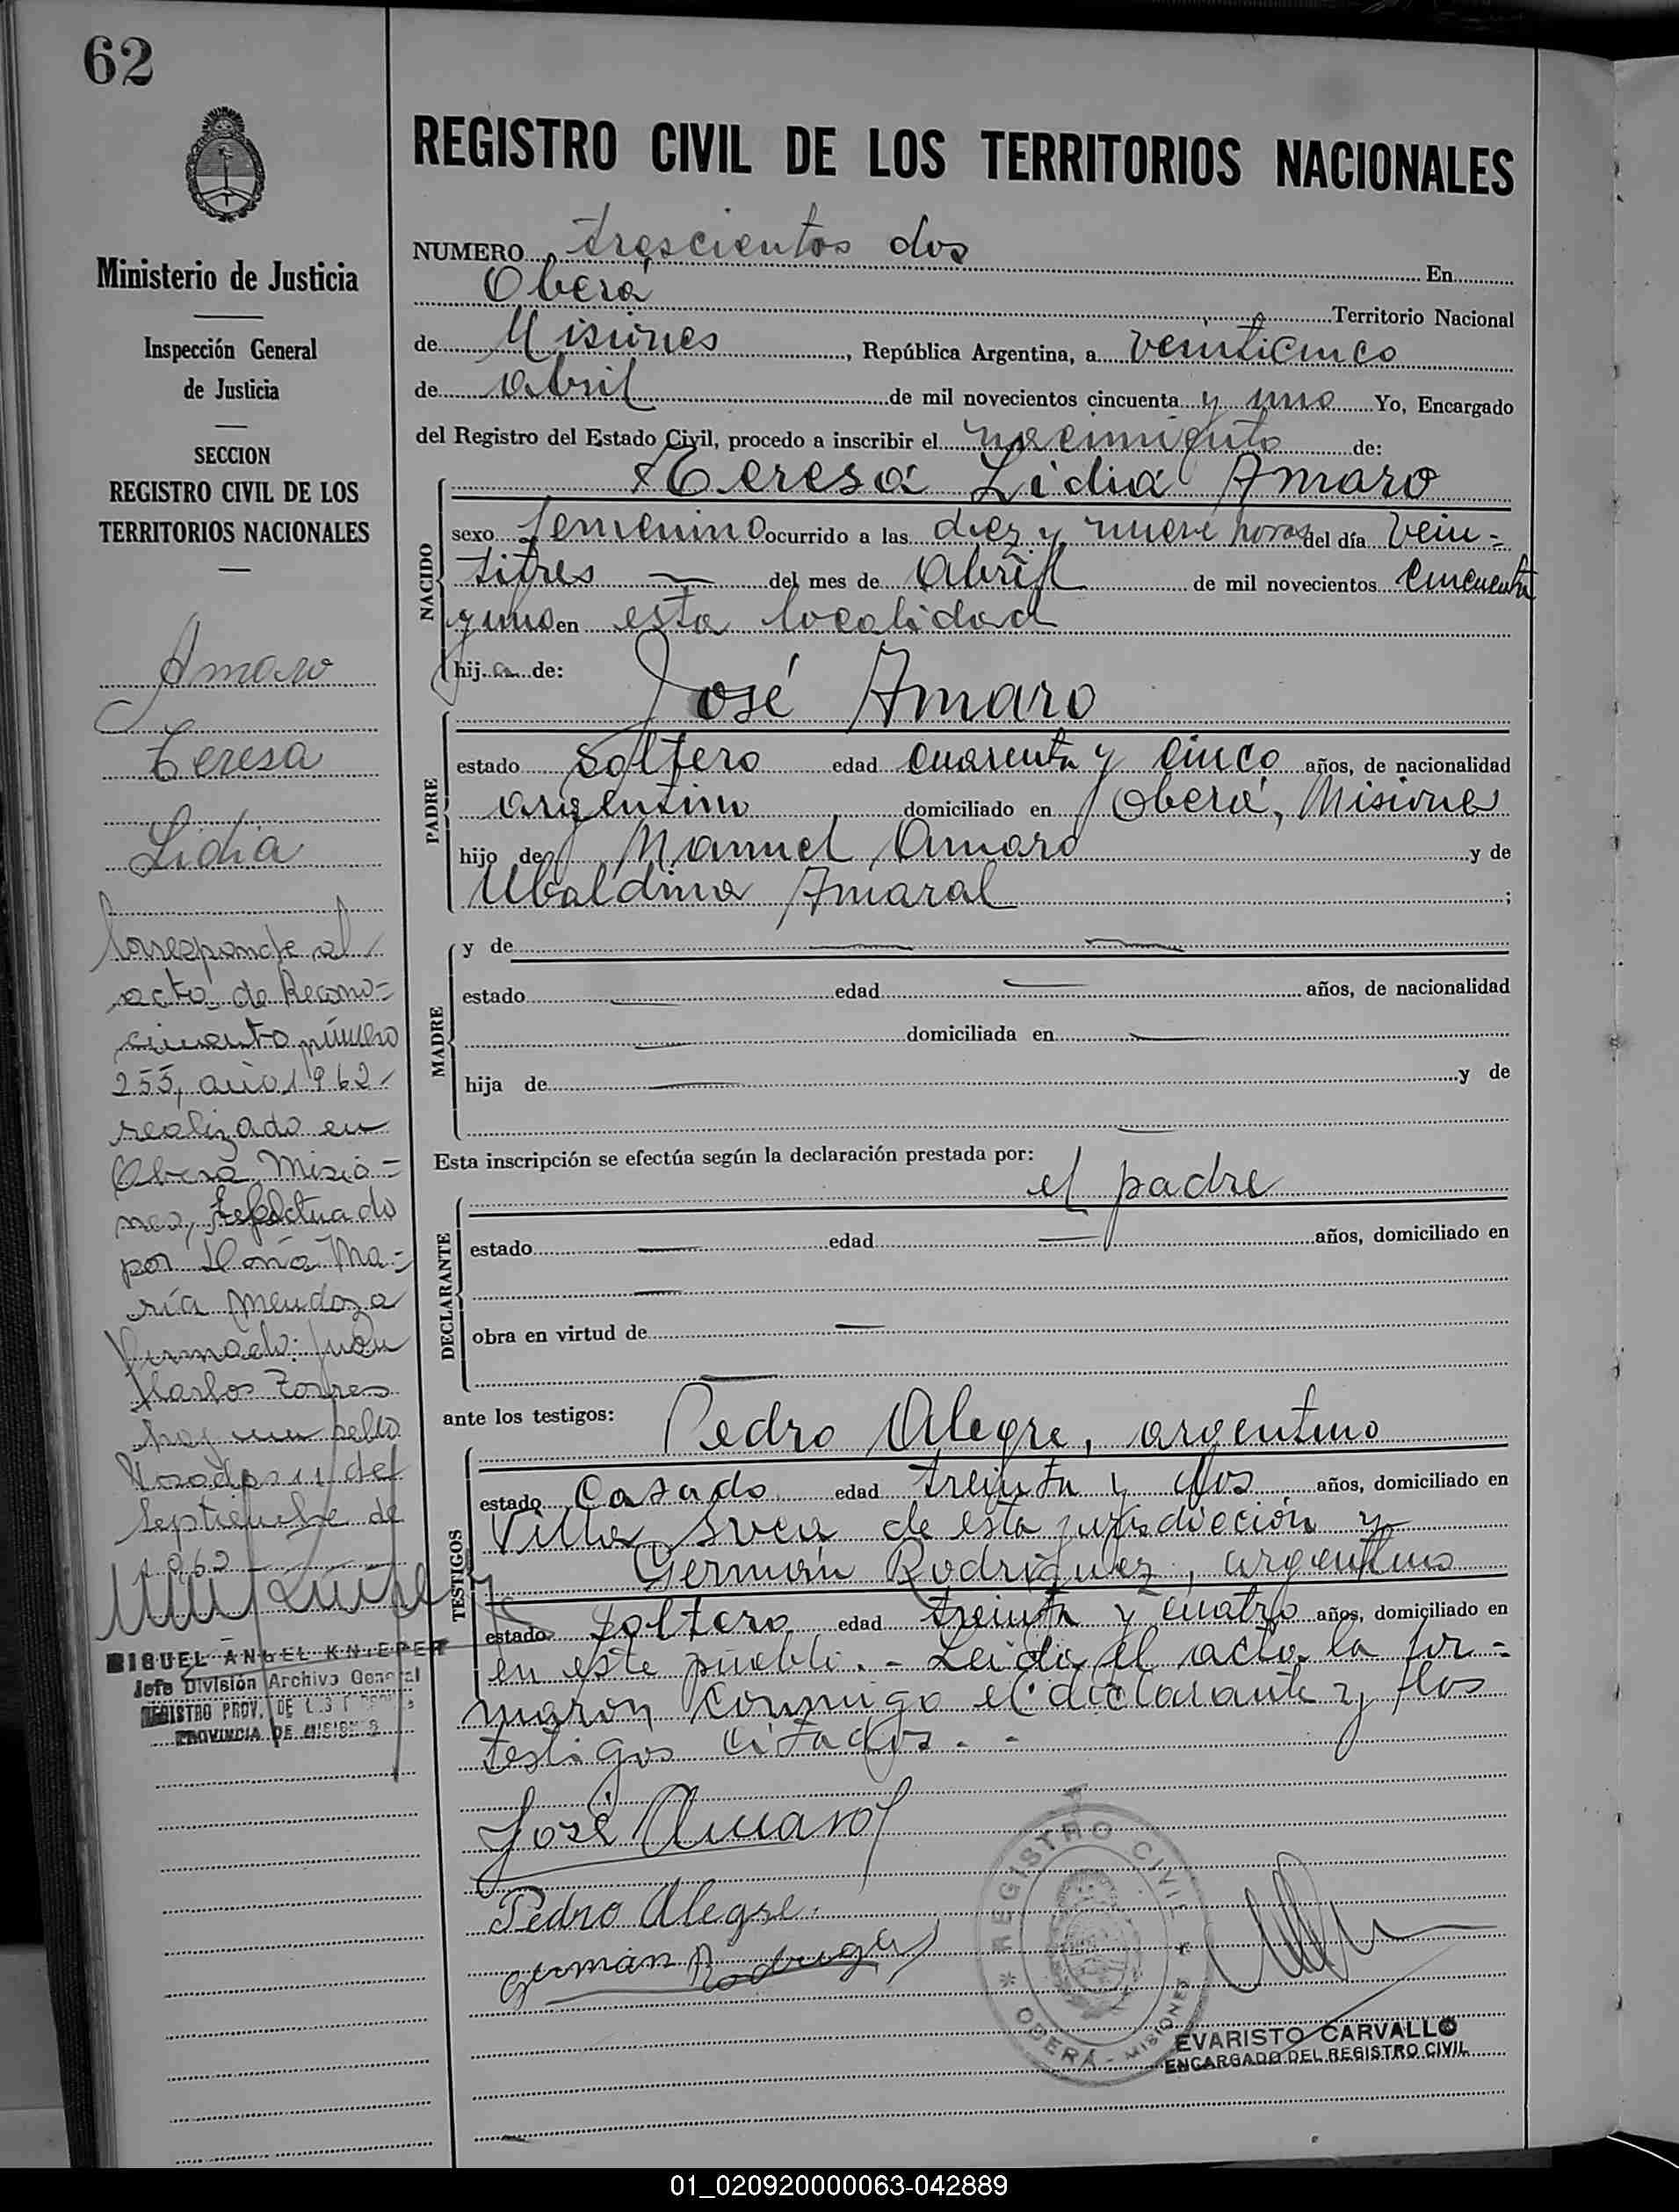 62
Ministerio de Justicia
Inspección General
de Justicia
SECCION
REGISTRO CIVIL DE LOS
TERRITORIOS NACIONALES
Amaro
Teresa
Lidia
Corresponde al
acto de Recono=
cimiento número
255, año 1962
realizado en
Oberá Misio=
nes, Efectuado
por Doña Ma=
ría Mendoza
firmado: Juan
Carlos Torres
hay un sello
Posadas 11 de
Septiembre de
1962
MIGUEL ANGEL KNIEPER
Jefe División Archivo General
REGISTRO PROV. DE
PROVINCIA DE MISIONES
REGISTRO CIVIL DE LOS TERRITORIOS NACIONALES
NUMERO trescientos dos En
Oberá Territorio Nacional
de Misiones, República Argentina, a veinticinco
de Abril de mil novecientos cincuenta y uno Yo, Encargado
del Registro del Estado Civil, procedo a inscribir el nacimiento de:
NACIDO
Teresa Lidia Amaro
sexo femenino ocurrido a las diez y nueve horas del día Vein=
titres del mes de Abril de mil novecientos cincuenta
y uno en esta localidad
hija de:
PADRE
José Amaro
estado soltero edad cuarenta y cinco años, de nacionalidad
argentino domiciliado en Oberá, Misiones
hijo de Manuel Amaro y de
Ubaldina Amaral;
MADRE
y de
estado edad años, de nacionalidad
domiciliada en
hija de y de
Esta inscripción se efectúa según la declaración prestada por:
el padre
DECLARANTE
estado edad años, domiciliado en
obra en virtud de
ante los testigos:
TESTIGOS
Pedro Alegre, argentino
estado Casado edad treinta y dos años, domiciliado en
Villa Svea de esta jurisdicción y
Germán Rodríguez, argentino
estado soltero edad treinta y cuatro años, domiciliado en
en este pueblo.- Leida el acta, la fir=
maron conmigo el declarante y los
testigos citados.-
José Amaro
Pedro Alegre.
German Rodrigez
REGISTRO CIVIL
OBERÁ - MISIONES
EVARISTO CARVALLO
ENCARGADO DEL REGISTRO CIVIL
01_020920000063-042889